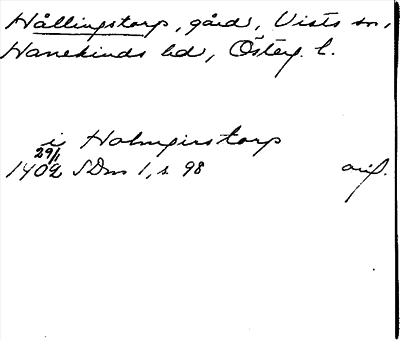 Hållingstorp, gård, Vists sn,
Hanekinds hd, Österg. l.
i Holmgirstorp
29/1
1402 SDns 1, s 98 orig.